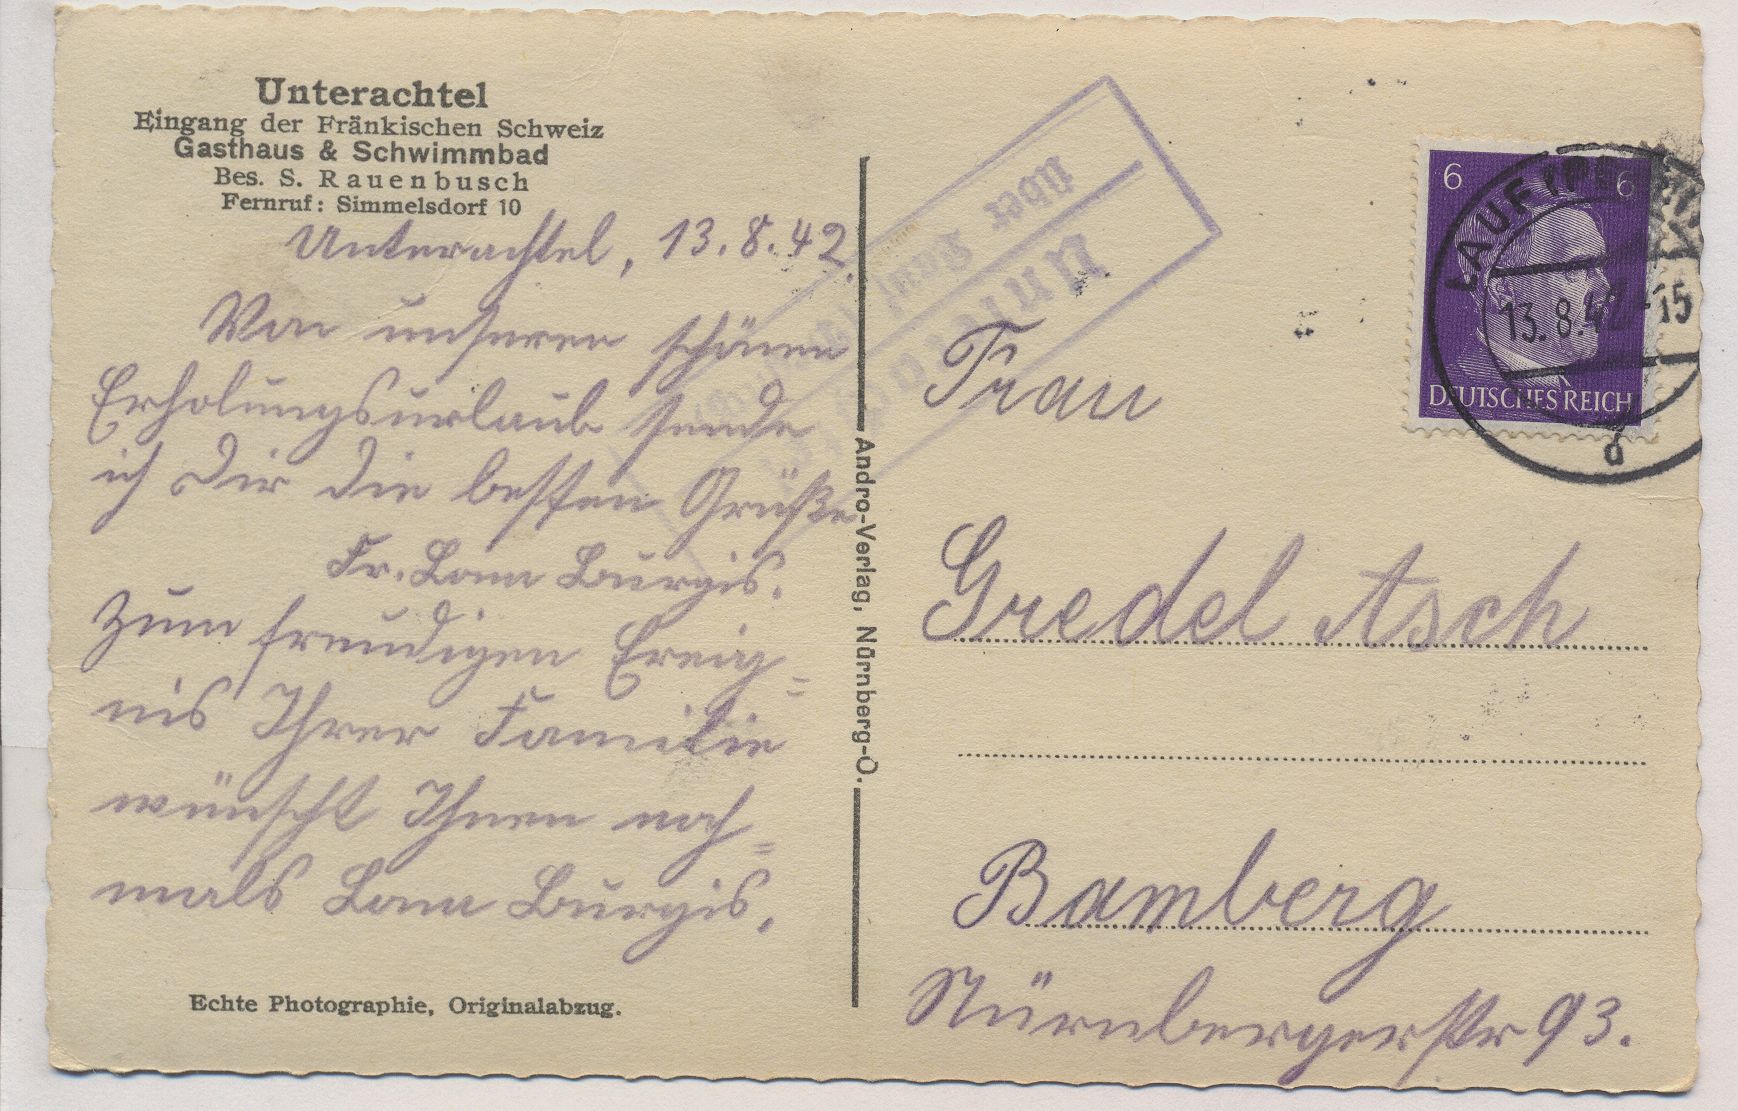 Unterachtel
Eingang der Fränkischen Schweiz
Gasthaus & Schwimmbad
Bes. S. Rauenbusch
Fernruf: Simmelsdorf 10
Unterachtel, 13.8.42.
Von unseren schönen
Erholungsurlaub sende
ich Dir die besten Grüße
Fr. Burgis.
Zum freudigen Ereig=
nis Ihrer Familie
wünscht Ihnen noch=
mals Burgis.
Echte Photographie, Originalabzug.
Andro-Verlag, Nürnberg-O.
über Lauf
6 6
DEUTSCHES REICH
LAUF
13.8.42.-15
a
Frau
Gredel Asch
Bamberg
Nürnbergerstr 93.